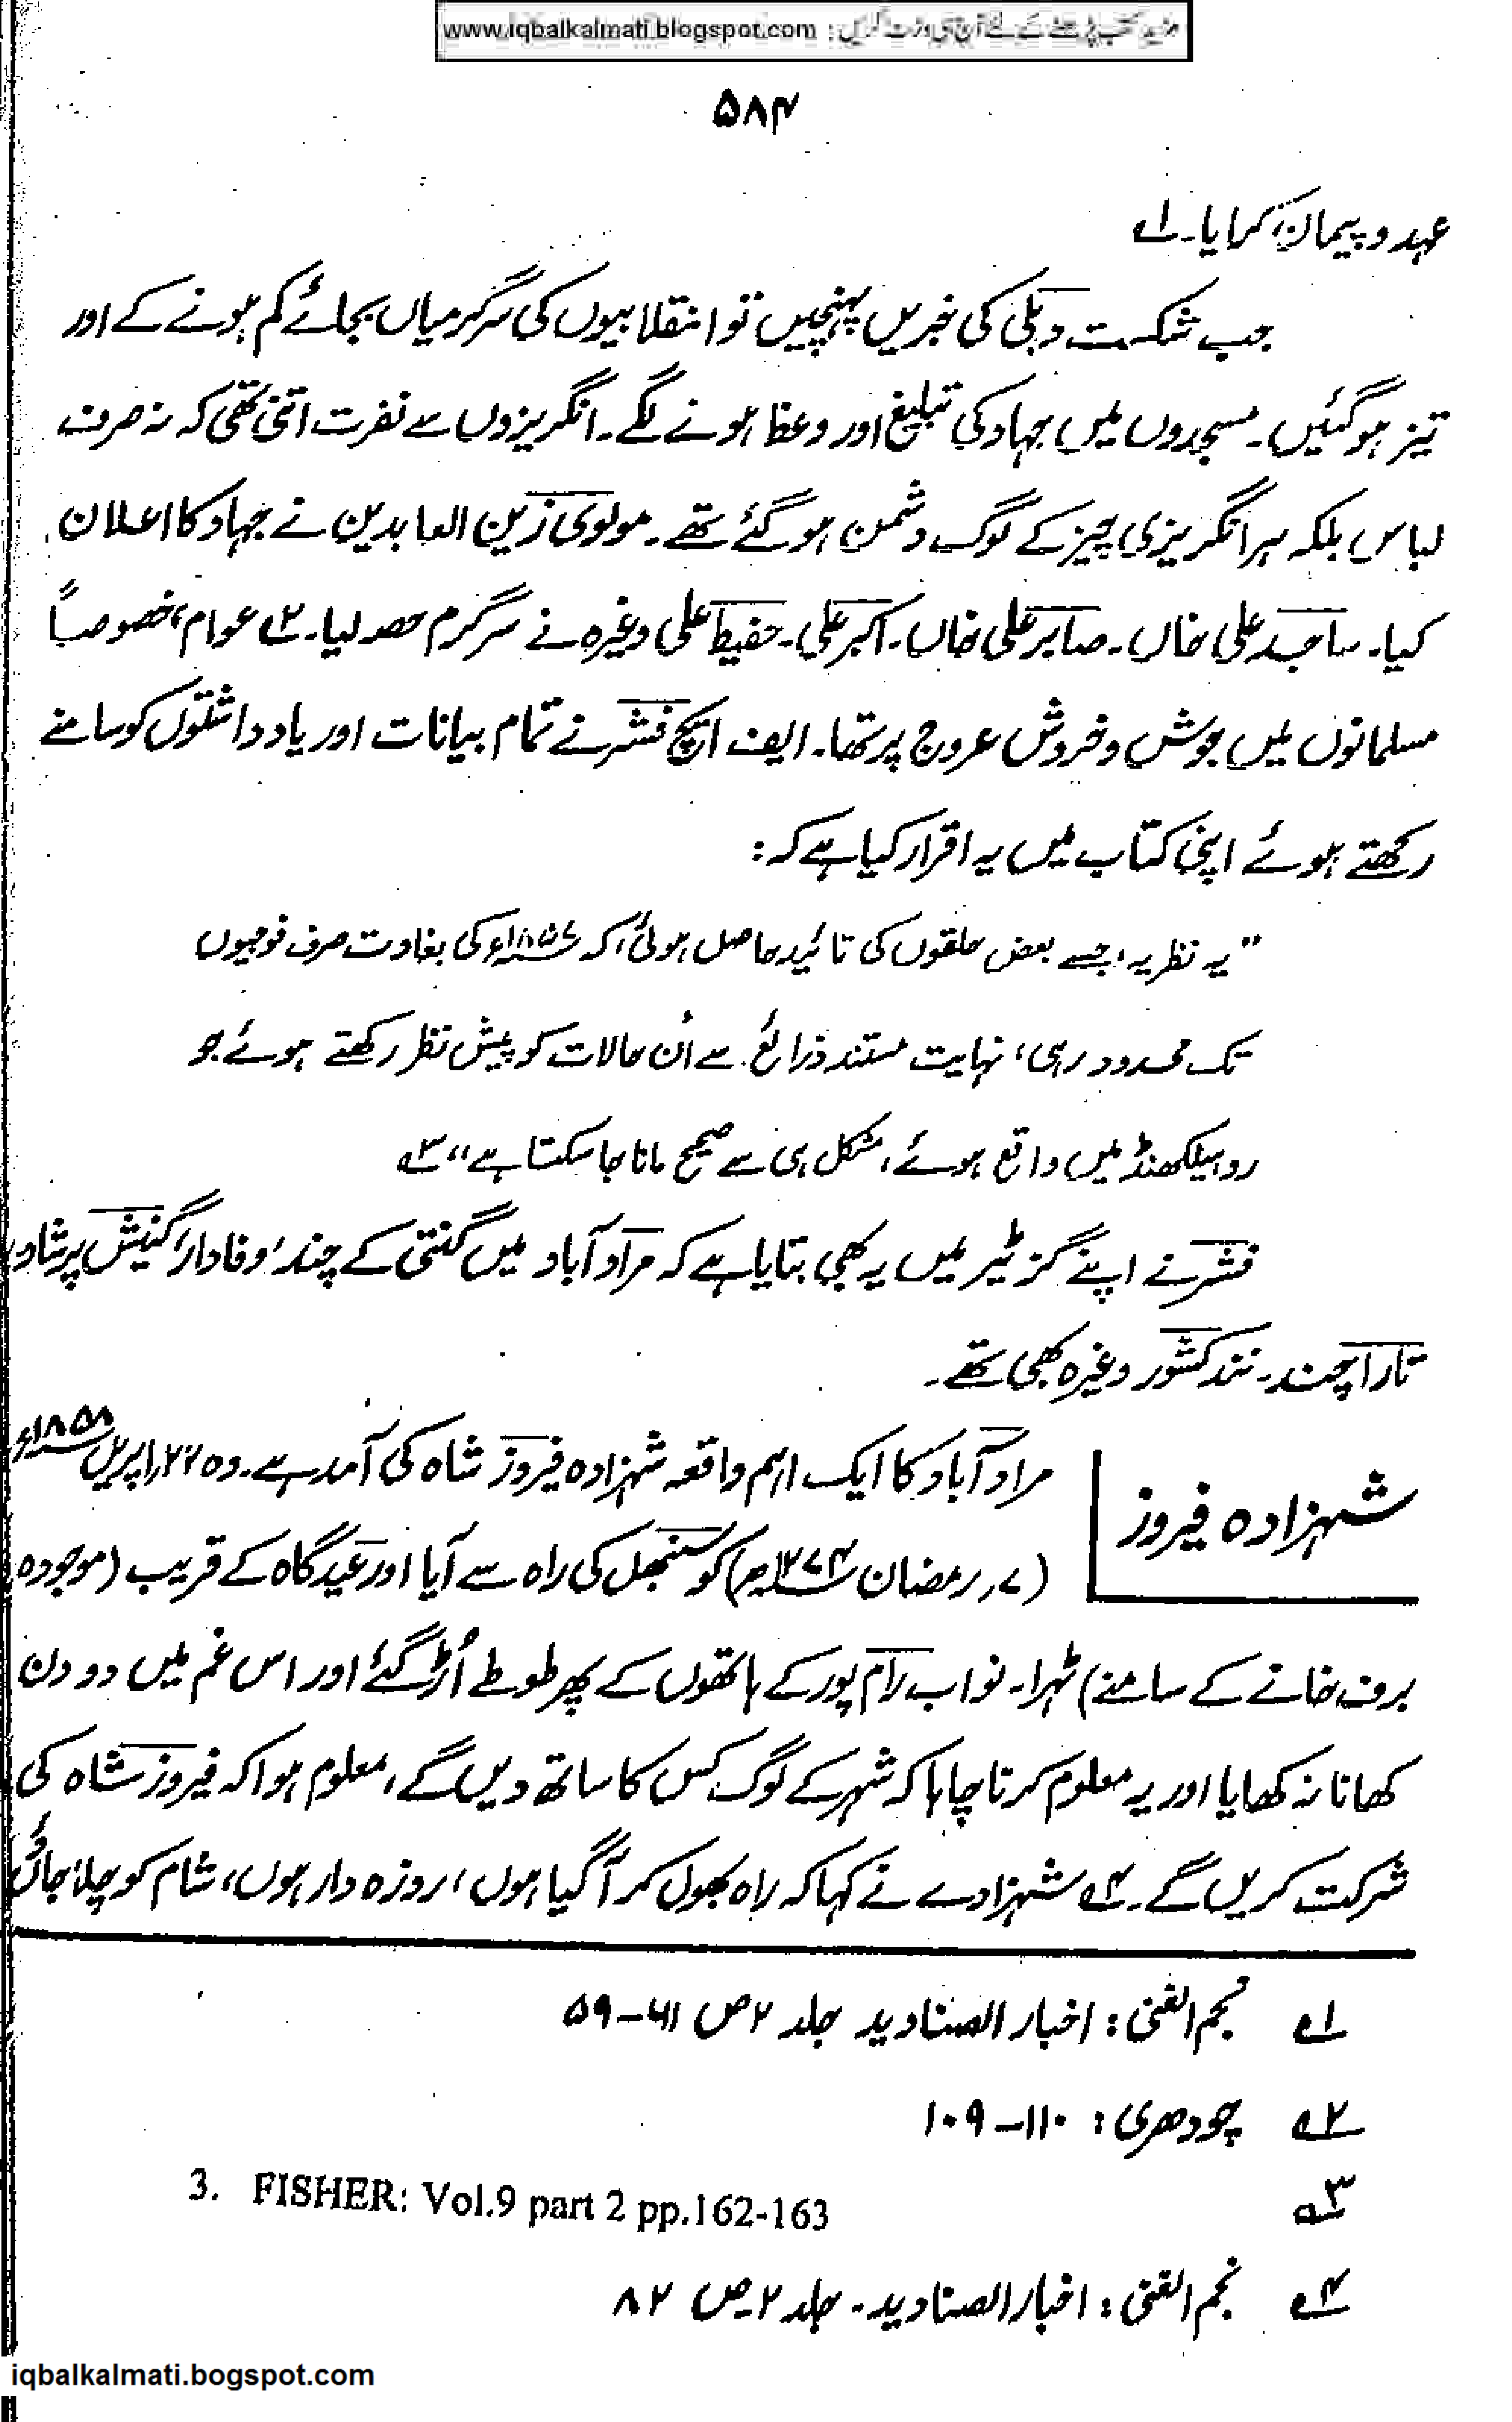 www.iqbalkalmati.blogspot.com : مزید کتب پڑھنے کے لئے آج ہی وزٹ کریں
۵۸۴
عہد و پیمان کرایا۔ ۱ے
جب شکست دہلی کی خبریں پہنچیں تو انقلابیوں کی سرگرمیاں بجائے کم ہونے کے اور
تیز ہوگئیں۔ مسجدوں میں جہاد کی تبلیغ اور وعظ ہونے لگے۔ انگریزوں سے نفرت اتنی تھی کہ نہ صرف
لباس بلکہ ہر انگریزی چیز کے لوگ دشمن ہو گئے تھے۔ مولوی زین العابدین نے جہاد کا اعلان
کیا۔ ساجد علی خاں۔ صابر علی خاں۔ اکبر علی۔ حفیظ علی وغیرہ نے سرگرم حصہ لیا۔ ۲ے عوام، خصوصاً
مسلمانوں میں جوش و خروش عروج پر تھا۔ ایف ایچ فشر نے تمام بیانات اور یادداشتوں کو سامنے
رکھتے ہوئے اپنی کتاب میں یہ اقرار کیا ہے کہ:
"یہ نظریہ، جسے بعض حلقوں کی تائید حاصل ہوئی، کہ ۱۸۵۷ء کی بغاوت صرف فوجیوں
تک محدود رہی، نہایت مستند ذرائع سے اُن حالات کو پیش نظر رکھتے ہوئے جو
روہیلکھنڈ میں واقع ہوئے، مشکل ہی سے صحیح مانا جا سکتا ہے" ۳ے
فشر نے اپنے گزٹیر میں یہ بھی بتایا ہے کہ مراد آباد میں گنتی کے چند 'وفادار' گنیش پرشاد،
تارا چند۔ نند کشور وغیرہ بھی تھے۔
شہزادہ فیروز
مراد آباد کا ایک اہم واقعہ شہزادہ فیروز شاہ کی آمد ہے۔ وہ ۲۲ اپریل ۱۸۵۸ء
(۷ رمضان ۱۲۷۴ھ) کو سنبھل کی راہ سے آیا اور عید گاہ کے قریب (موجودہ
برف خانے کے سامنے) ٹہرا۔ نواب رام پور کے ہاتھوں کے پھر طوطے اُڑ گئے اور اس غم میں دو دن
کھانا نہ کھایا اور یہ معلوم کرنا چاہا کہ شہر کے لوگ کس کا ساتھ دیں گے، معلوم ہوا کہ فیروز شاہ کی
شرکت کریں گے۔ ۴ے شہزادے نے کہا کہ راہ بھول کر آگیا ہوں، روزہ دار ہوں، شام کو چلا جاؤں
۱ے نجم الغنی: اخبار الصنادید جلد ۲ ص ۶۱–۵۹
۲ے چودھری: ۱۱۰–۱۰۹
۳ے 3. FISHER: Vol.9 part 2 pp.162-163
۴ے نجم الغنی: اخبار الصنادید۔ جلد ۲۔ ص ۸۲
iqbalkalmati.bogspot.com